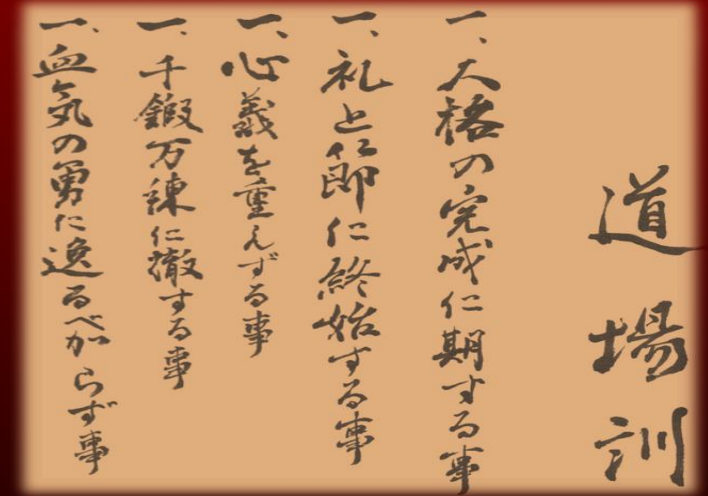 道場訓
一、人格の完成に期する事
一、礼と仁即に終始する事
一、心義を重んずる事
一、千鍛万練に徹する事
一、血気の勇に逸るべからず事